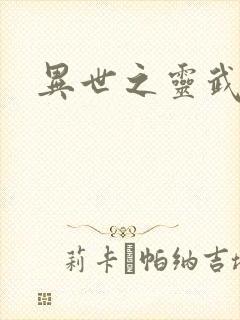 異世之靈武
莉卡·帕納吉